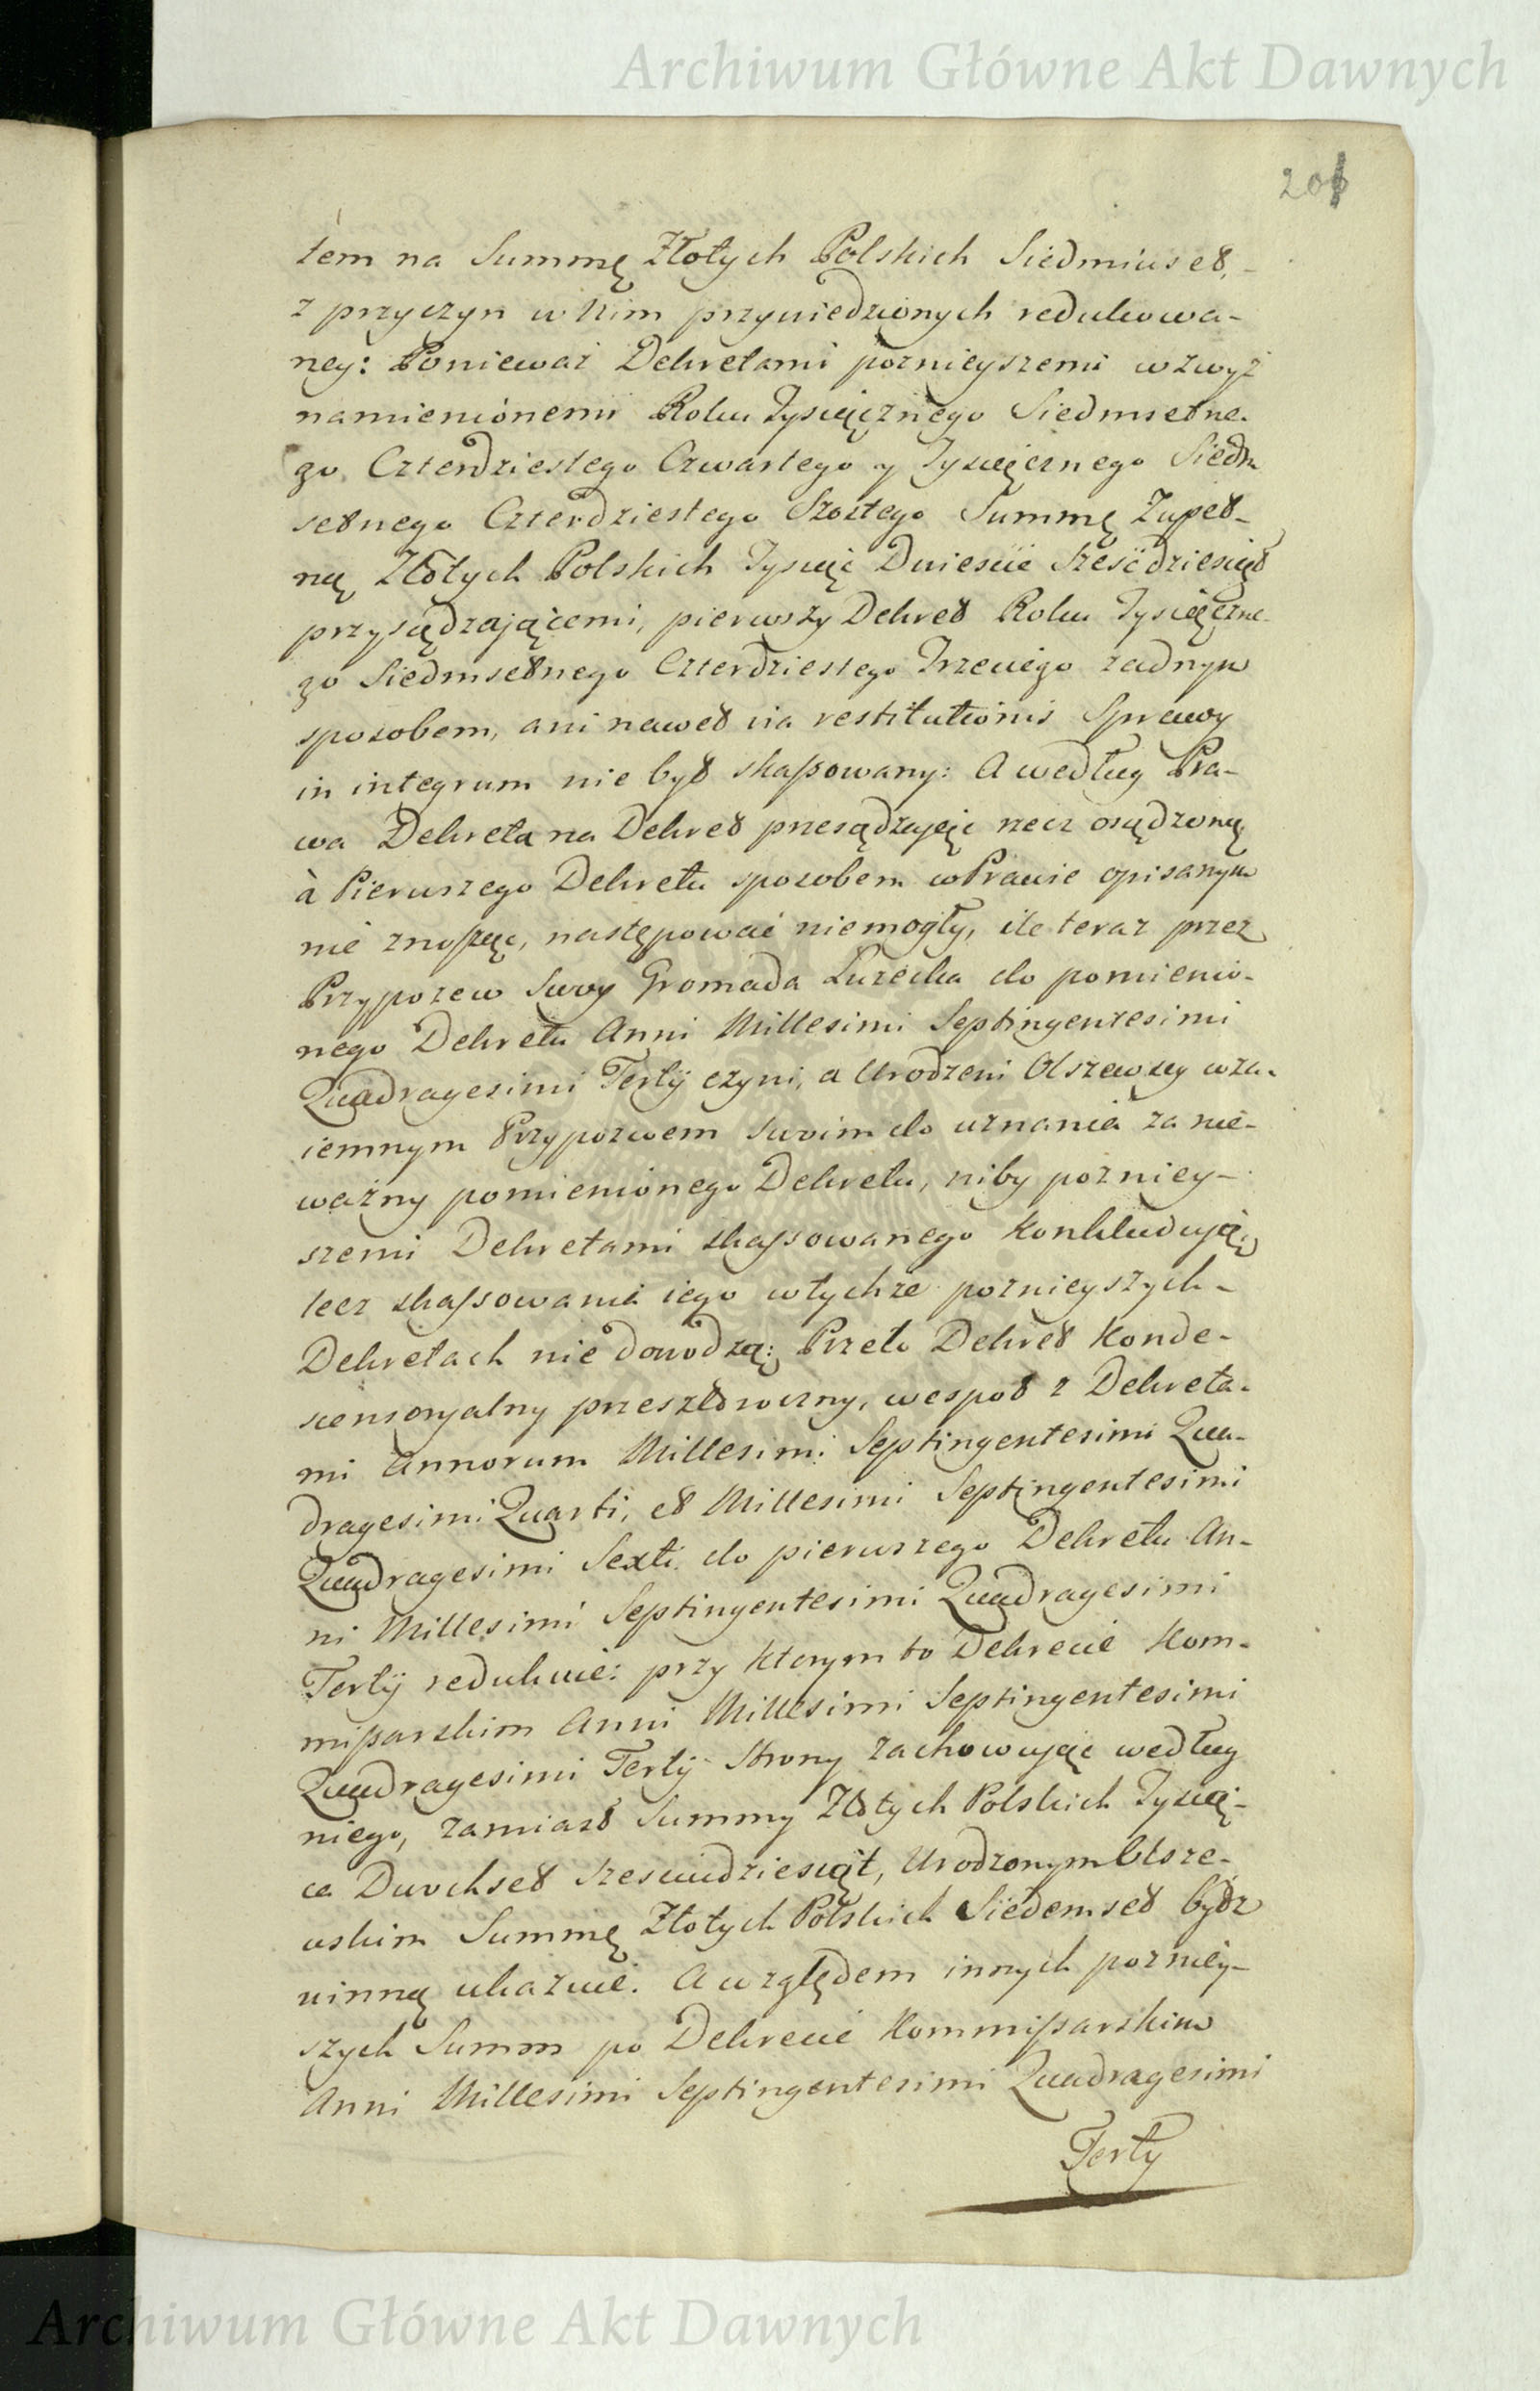 Archiwum Główne Akt Dawnych
201
tem na Summę Złotych Polskich Siedmiuset,
z przyczyn w Nim przywiedzionych redukowa-
ney: Ponieważ Dekretami poznieyszemi wzwyż
namienionemi Roku Tysiącznego Siedmsetne-
go Czterdziestego Czwartego y Tysiącznego Siedm
setnego Czterdziestego Szostego Summę Zupeł-
ną Złotych Polskich Tysiąc Dwieście sześćdziesiąt
przysądzającemi, pierwszy Dekret Roku Tysiączne-
go Siedmsetnego Czterdziestego Trzeciego żadnym
sposobem, ani nawet via restitutionis Sprawy
in integrum nie był skassowany: A według Pra-
wa Dekreta na Dekret przesądzając rzecz osądzoną
à Pierwszego Dekretu sposobem w Prawie opisanym
nie znosząc, następować niemogły, ile teraz przez
Przypozew Swoy Gromada Łużecka do pomienio-
nego Dekretu Anni Millesimi Septingentesimi
Quadragesimi Tertÿ czyni, a Urodzeni Olszewscy wza-
iemnym Przypozwem swoim do uznania za nie-
ważny pomienionego Dekretu, niby pozniey-
szemi Dekretami skassowanego konkludują,
lecz skassowania iego w tychże poznieyszych
Dekretach nie dowodzą: Przeto Dekret Konde-
scensoryalny przeszłoroczny, wespoł z Dekreta-
mi Annorum Millesimi Septingentesimi Qua-
dragesimi Quarti, et Millesimi Septingentesimi
Quadragesimi Sexti do pierwszego Dekretu An-
ni Millesimi Septingentesimi Quadragesimi
Tertÿ redukuie: przy ktorym to Dekrecie Kom-
missarskim Anni Millesimi Septingentesimi
Quadragesimi Tertÿ Strony zachowując według
niego, zamiast Summy Złotych Polskich Tysią-
ca Dwochset sześciudziesiąt, Urodzonym Olsze-
wskim Summę Złotych Polskich Siedemset bydź
winną ukazuie. A względem innych pozniey-
szych Summ po Dekrecie Kommissarskim
Anni Millesimi Septingentesimi Quadragesimi
Tertÿ
Archiwum Główne Akt Dawnych